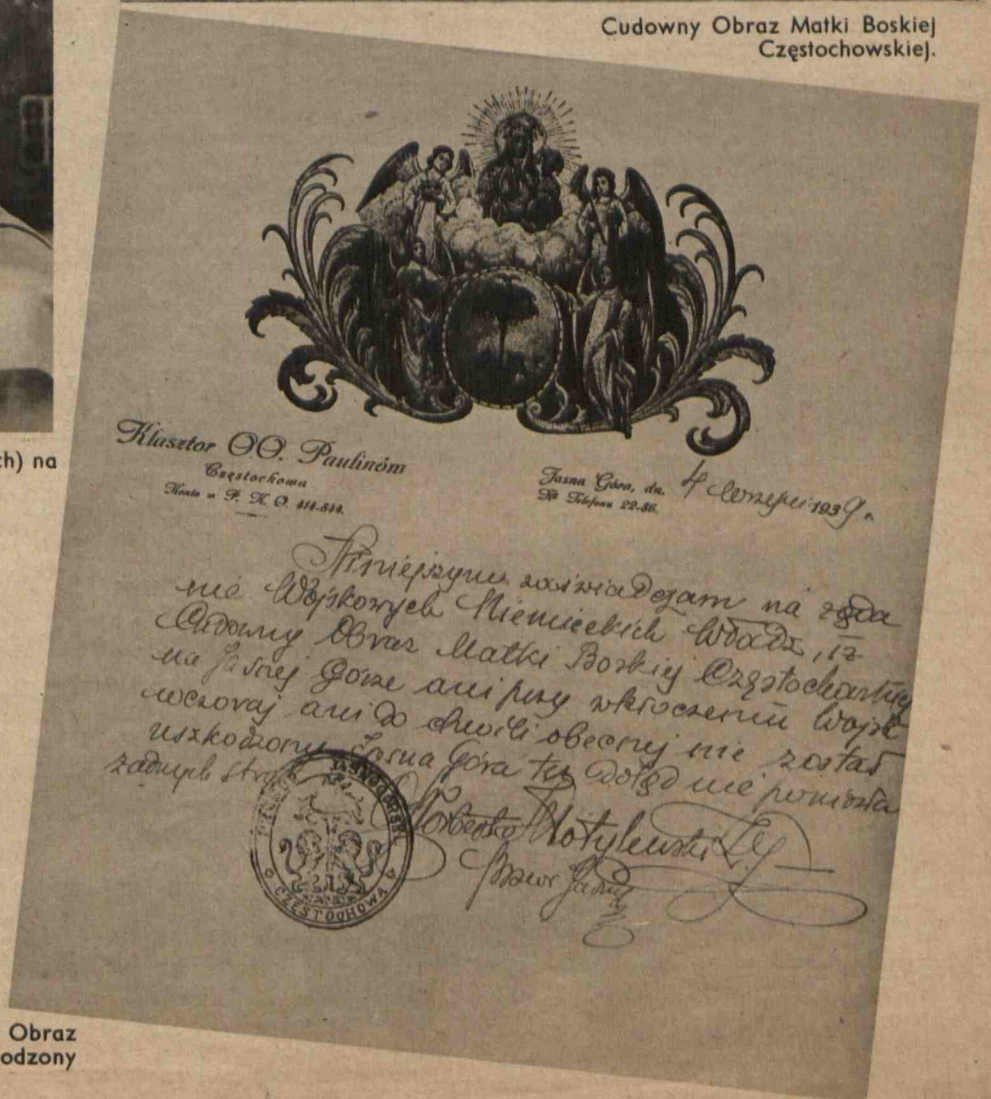 Cudowny Obraz Matki Boskiej
Częstochowskiej.
ch) na
Klasztor OO. Paulinów
Częstochowa
Konto w P. K. O. 414.544.
Jasna Góra, dn. 4 września 1939 r.
Telefonu 22.56.
Niniejszym zaświadczam na żąda
nie Wojskowych Niemieckich Władz, iż
Cudowny Obraz Matki Boskiej Częstochowskiej
na Jasnej Górze ani przy wkroczeniu Wojsk
wczoraj ani do chwili obecnej nie został
uszkodzony. Jasna Góra też dotąd nie poniosła
żadnych strat
Norbert Motylewski
Przeor Jasnej
JASNOGÓRSKI
CZĘSTOCHOWA
Obraz
odzony